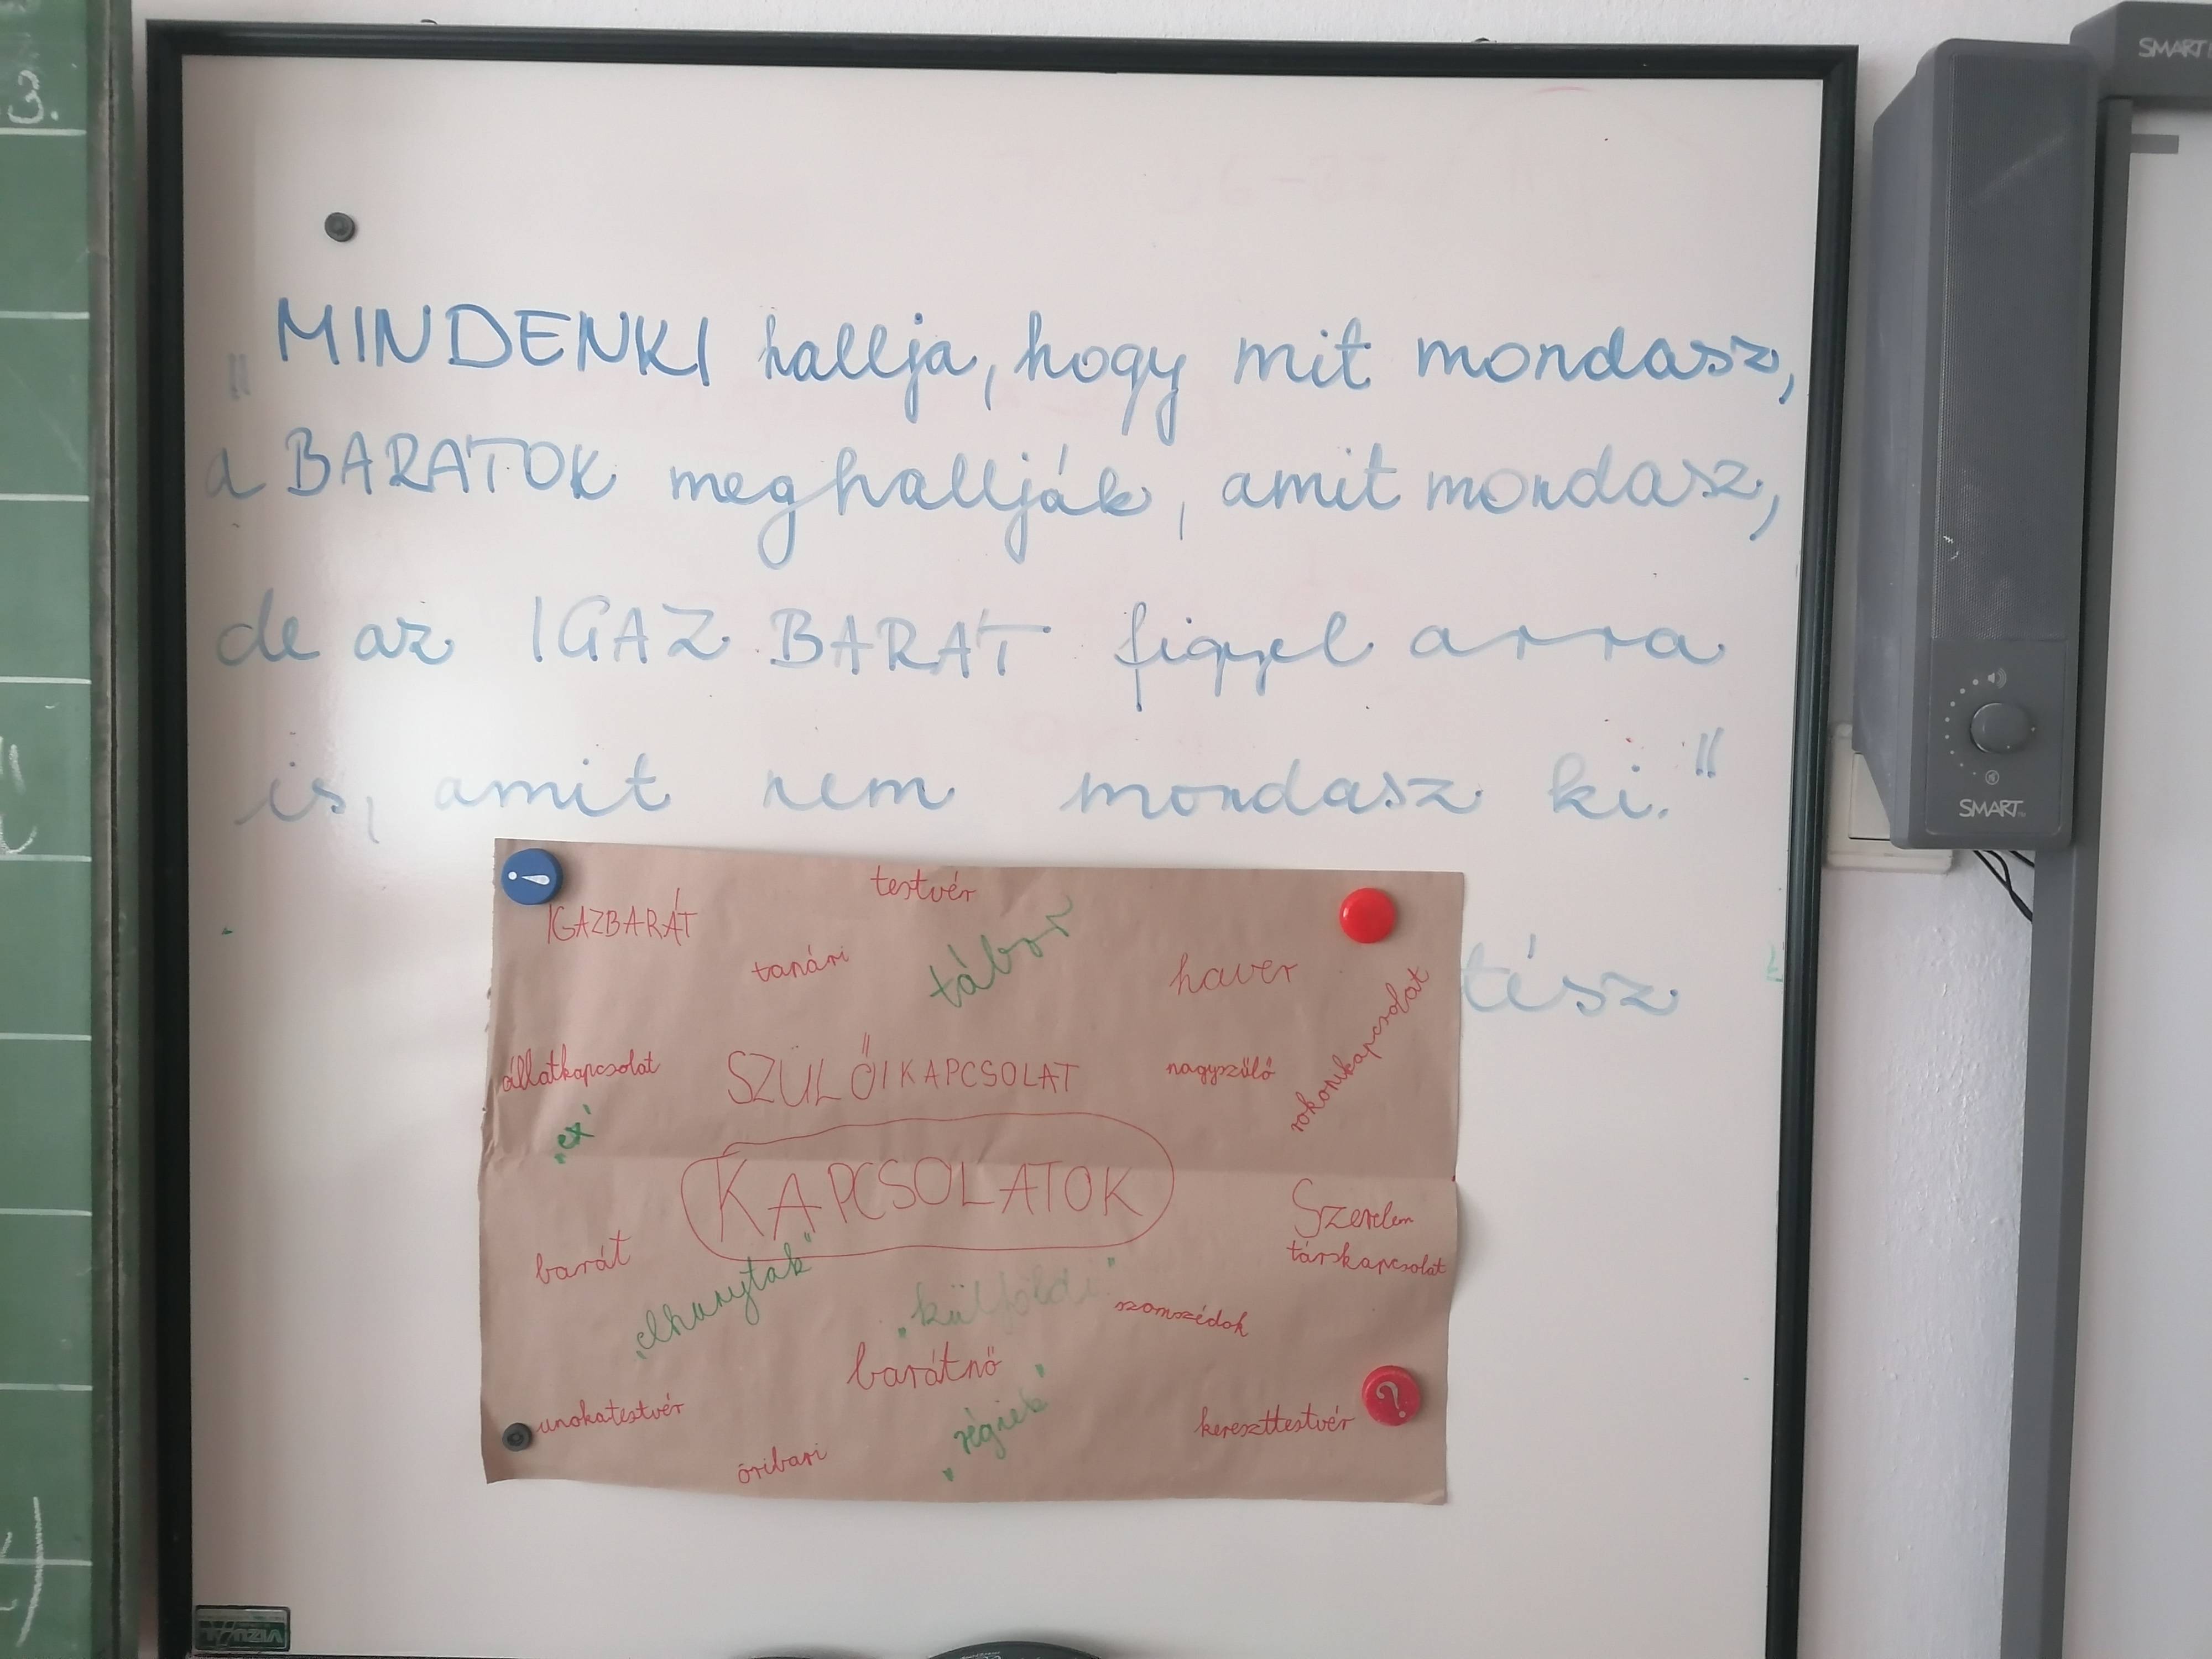 3.
SMART
„MINDENKI hallja, hogy mit mondasz,
a BARÁTOK meghallják, amit mondasz,
de az IGAZ BARÁT figyel arra
is, amit nem mondasz ki."
tész
SMART
IGAZBARÁT
testvér
tanári
tábor
haver
rokonikapcsolat
állatkapcsolat
SZÜLŐI KAPCSOLAT
nagyszülő
„ex"
KAPCSOLATOK
Szerelem
társkapcsolat
barát
„elhanyltak"
„külföldi"
szomszédok
barátnő
unokatestvér
„régiek"
kereszttestvér
óribari
VIZUÁL